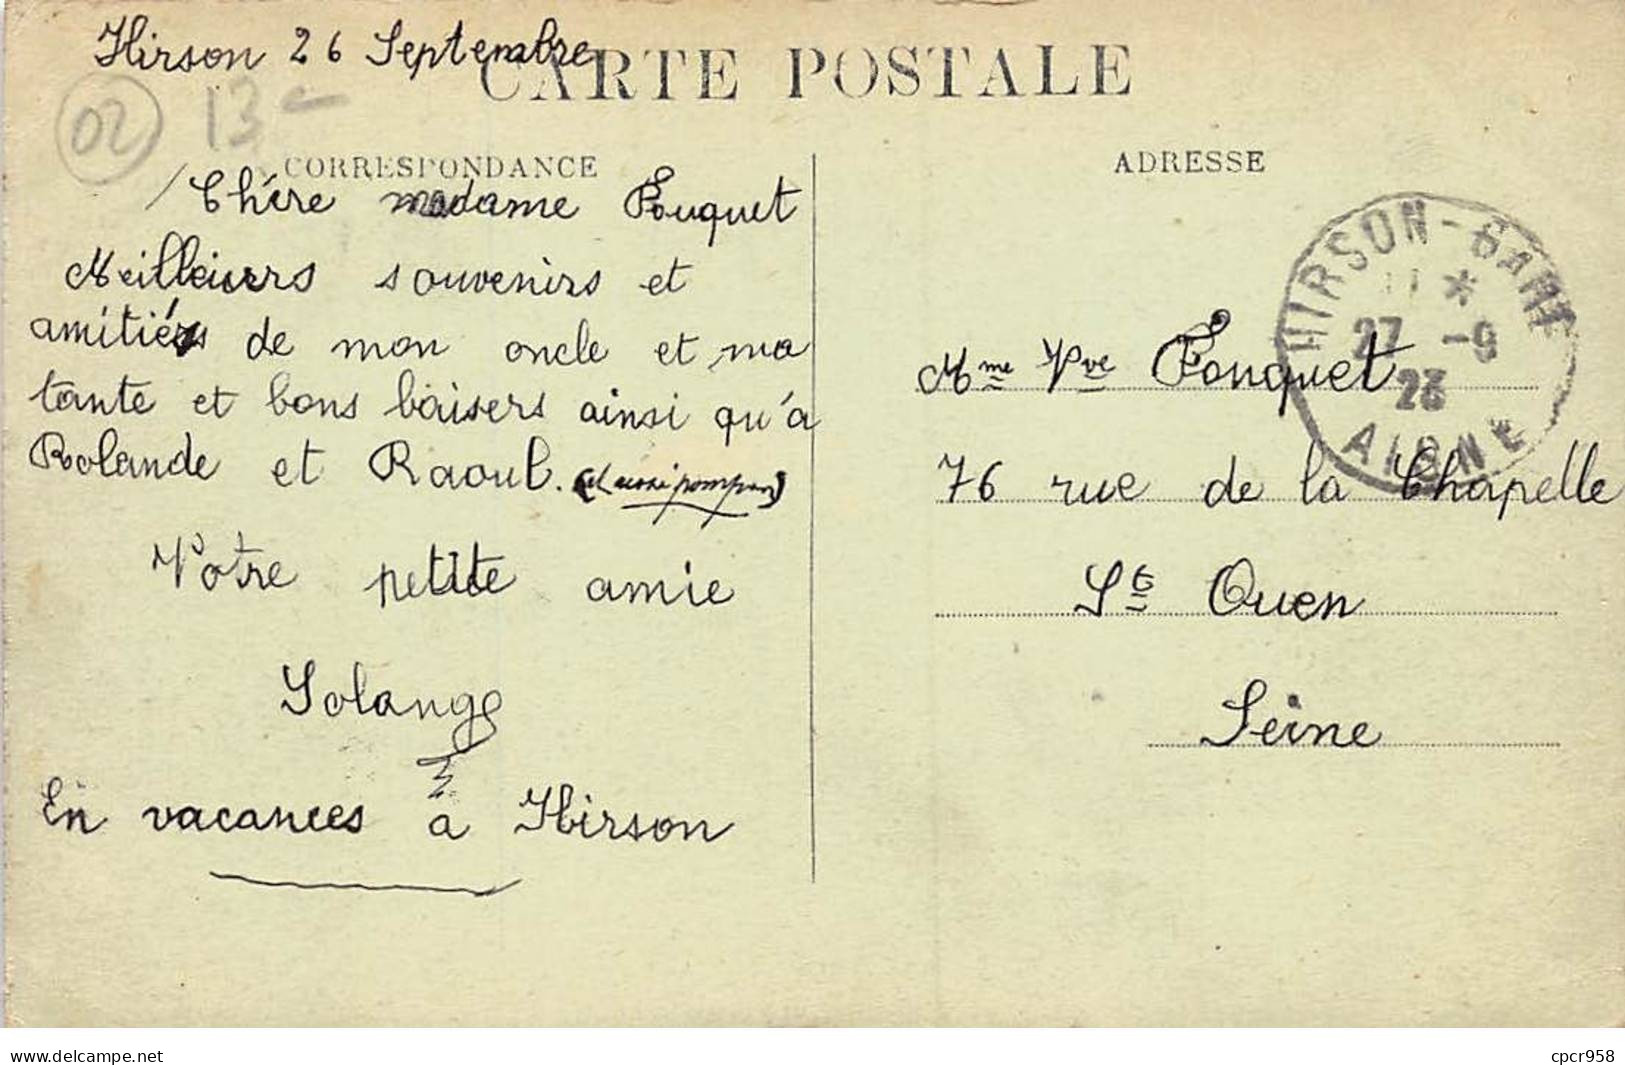 Hirson 26 Septembre
CARTE POSTALE
02 13 -
CORRESPONDANCE
Chére madame Fouquet
Meilleiurs souvenirs et
amitiés de mon oncle et ma
tante et bons baisers ainsi qu'a
Rolande et Raoul. (et aussi pompon)
Votre petite amie
Solange
En vacances a Hirson
ADRESSE
HIRSON-GARE
11 *
27 -9
23
AISNE
Mme Vve Fouquet
76 rue de la Chapelle
St Ouen
Seine
www.delcampe.net
cpcr958